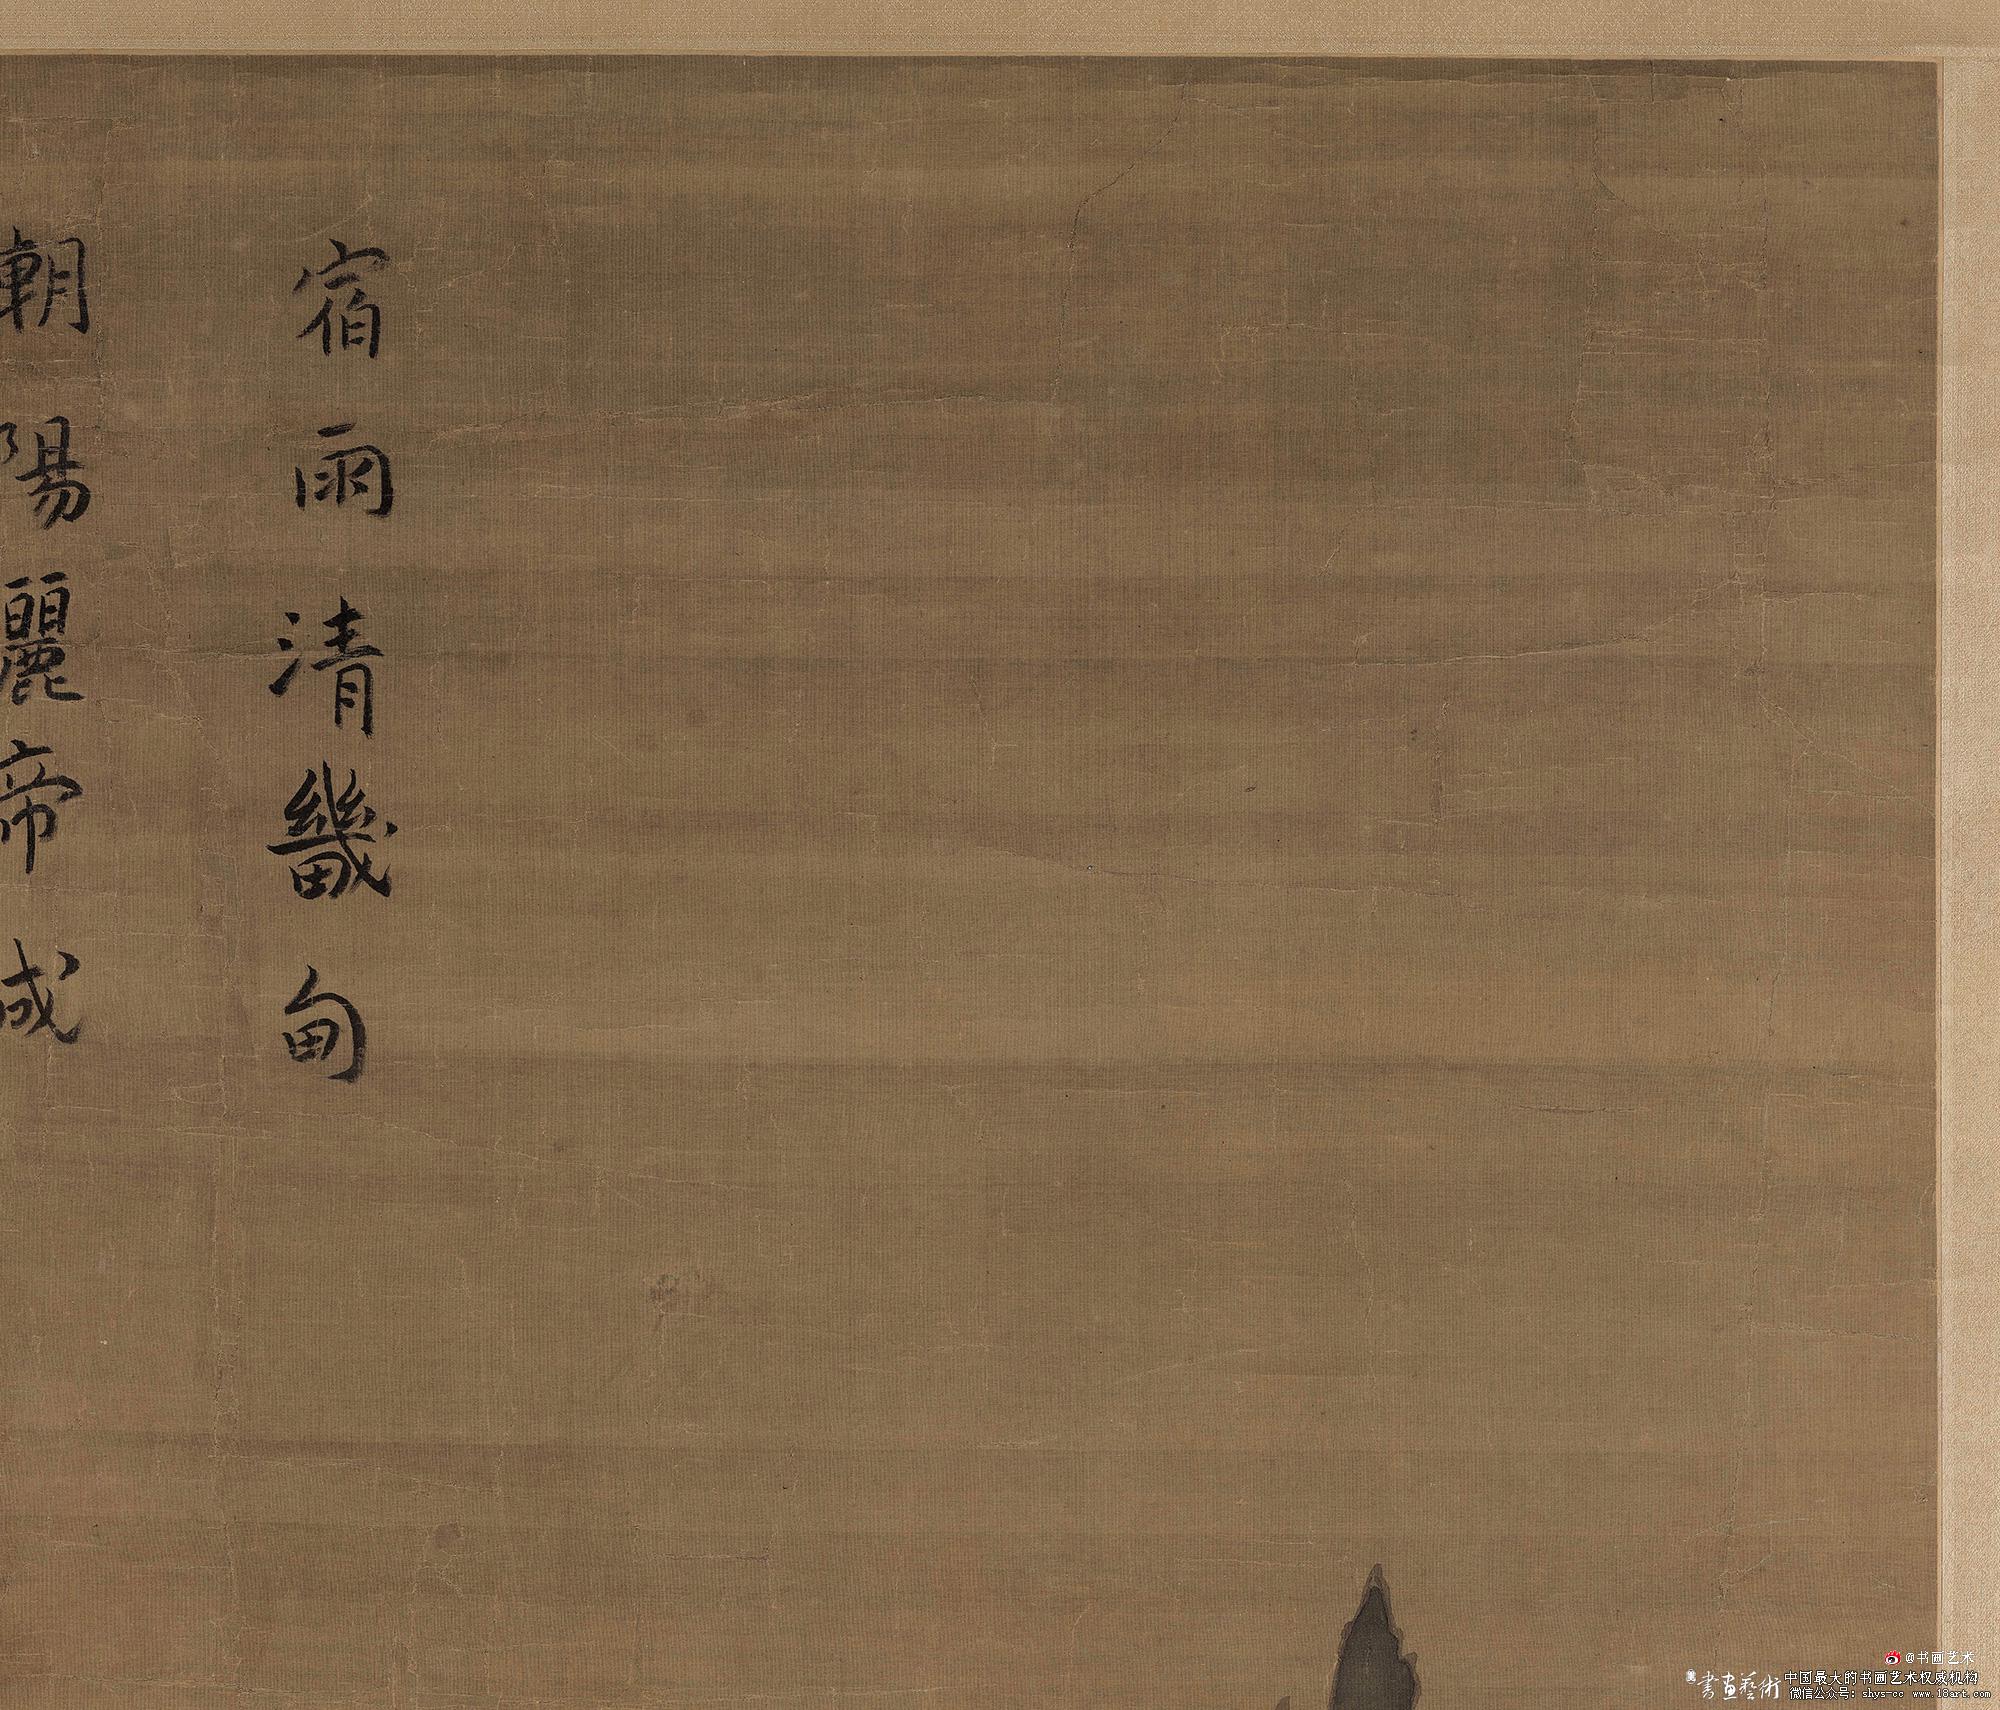 宿雨清畿甸
朝陽麗帝城
@书画艺术
書畫藝術
中国最大的书画艺术权威机构
微信公众号：shys-cc www.18art.com